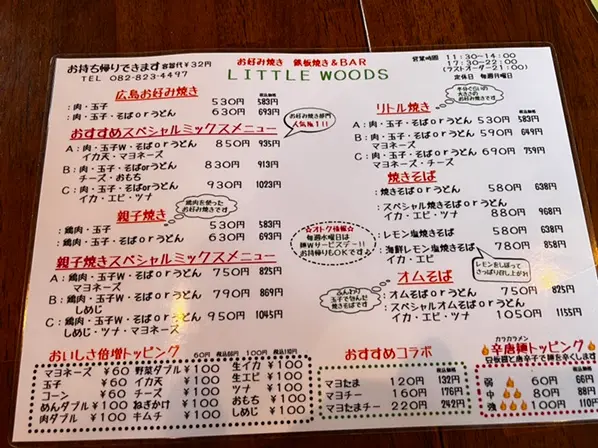 お持ち帰りできます 容器代￥32円
TEL 082-823-4497
お好み焼き 鉄板焼き&BAR
LITTLE WOODS
営業時間 11:30-14:00
17:30-22:00
(ラストオーダー21:00)
定休日 毎週月曜日
広島お好み焼き 税込価格
:肉・玉子 530円 583円
:肉・玉子・そばorうどん 630円 693円
おすすめスペシャルミックスメニュー
お好み焼き部門
人気No.1!!
A:肉・玉子W・そばorうどん 850円 935円
イカ天・マヨネーズ
B:肉・玉子・そばorうどん 830円 913円
チーズ・おもち
C:肉・玉子・そばorうどん 930円 1023円
イカ・エビ・ツナ
親子焼き
鶏肉を使った
お好み焼きです
:鶏肉・玉子 530円 583円
:鶏肉・玉子・そばorうどん 630円 693円
親子焼きスペシャルミックスメニュー
A:鶏肉・玉子W・そばorうどん 750円 825円
マヨネーズ
B:鶏肉・玉子・そばorうどん 790円 869円
しめじ
C:鶏肉・玉子W・そばorうどん 950円 1045円
しめじ・ツナ・マヨネーズ
リトル焼き
半分ぐらいの
大きさの
お好み焼きです
税込価格
:肉・玉子・そばorうどん 530円 583円
A:肉・玉子・そばorうどん 590円 649円
マヨネーズ
B:肉・玉子・そばorうどん 690円 759円
マヨネーズ・チーズ
焼きそば
:焼きそばorうどん 580円 638円
:スペシャル焼きそばorうどん
イカ・エビ・ツナ 880円 968円
:レモン塩焼きそば 580円 638円
:海鮮レモン塩焼きそば 780円 858円
イカ・エビ
レモンをしぼって
さっぱり召し上がれ
☆オトク情報☆
毎週水曜日は
麺Wサービスデー!!
お持帰りもOKですよ
オムそば
ふんわり
玉子で包んだ
焼きそばです
:オムそばorうどん 750円 825円
:スペシャルオムそばorうどん
イカ・エビ・ツナ 1050円 1155円
おいしさ倍増トッピング 60円 税込66円 100円 税込110円
マヨネーズ ￥60 野菜ダブル ￥100 生イカ ￥100
玉子 ￥60 イカ天 ￥100 生エビ ￥100
コーン ￥60 チーズ ￥100 ツナ ￥100
めんダブル ￥100 ねぎかけ ￥100 おもち ￥100
肉ダブル ￥100 キムチ ￥100 しめじ ￥100
おすすめコラボ
税込価格
マヨたま 120円 132円
マヨチー 160円 176円
マヨたまチー 220円 242円
カラカラメン
辛唐麺トッピング
豆板醤と唐辛子で麺を辛くします
弱 60円 66円
中 80円 88円
強 100円 110円